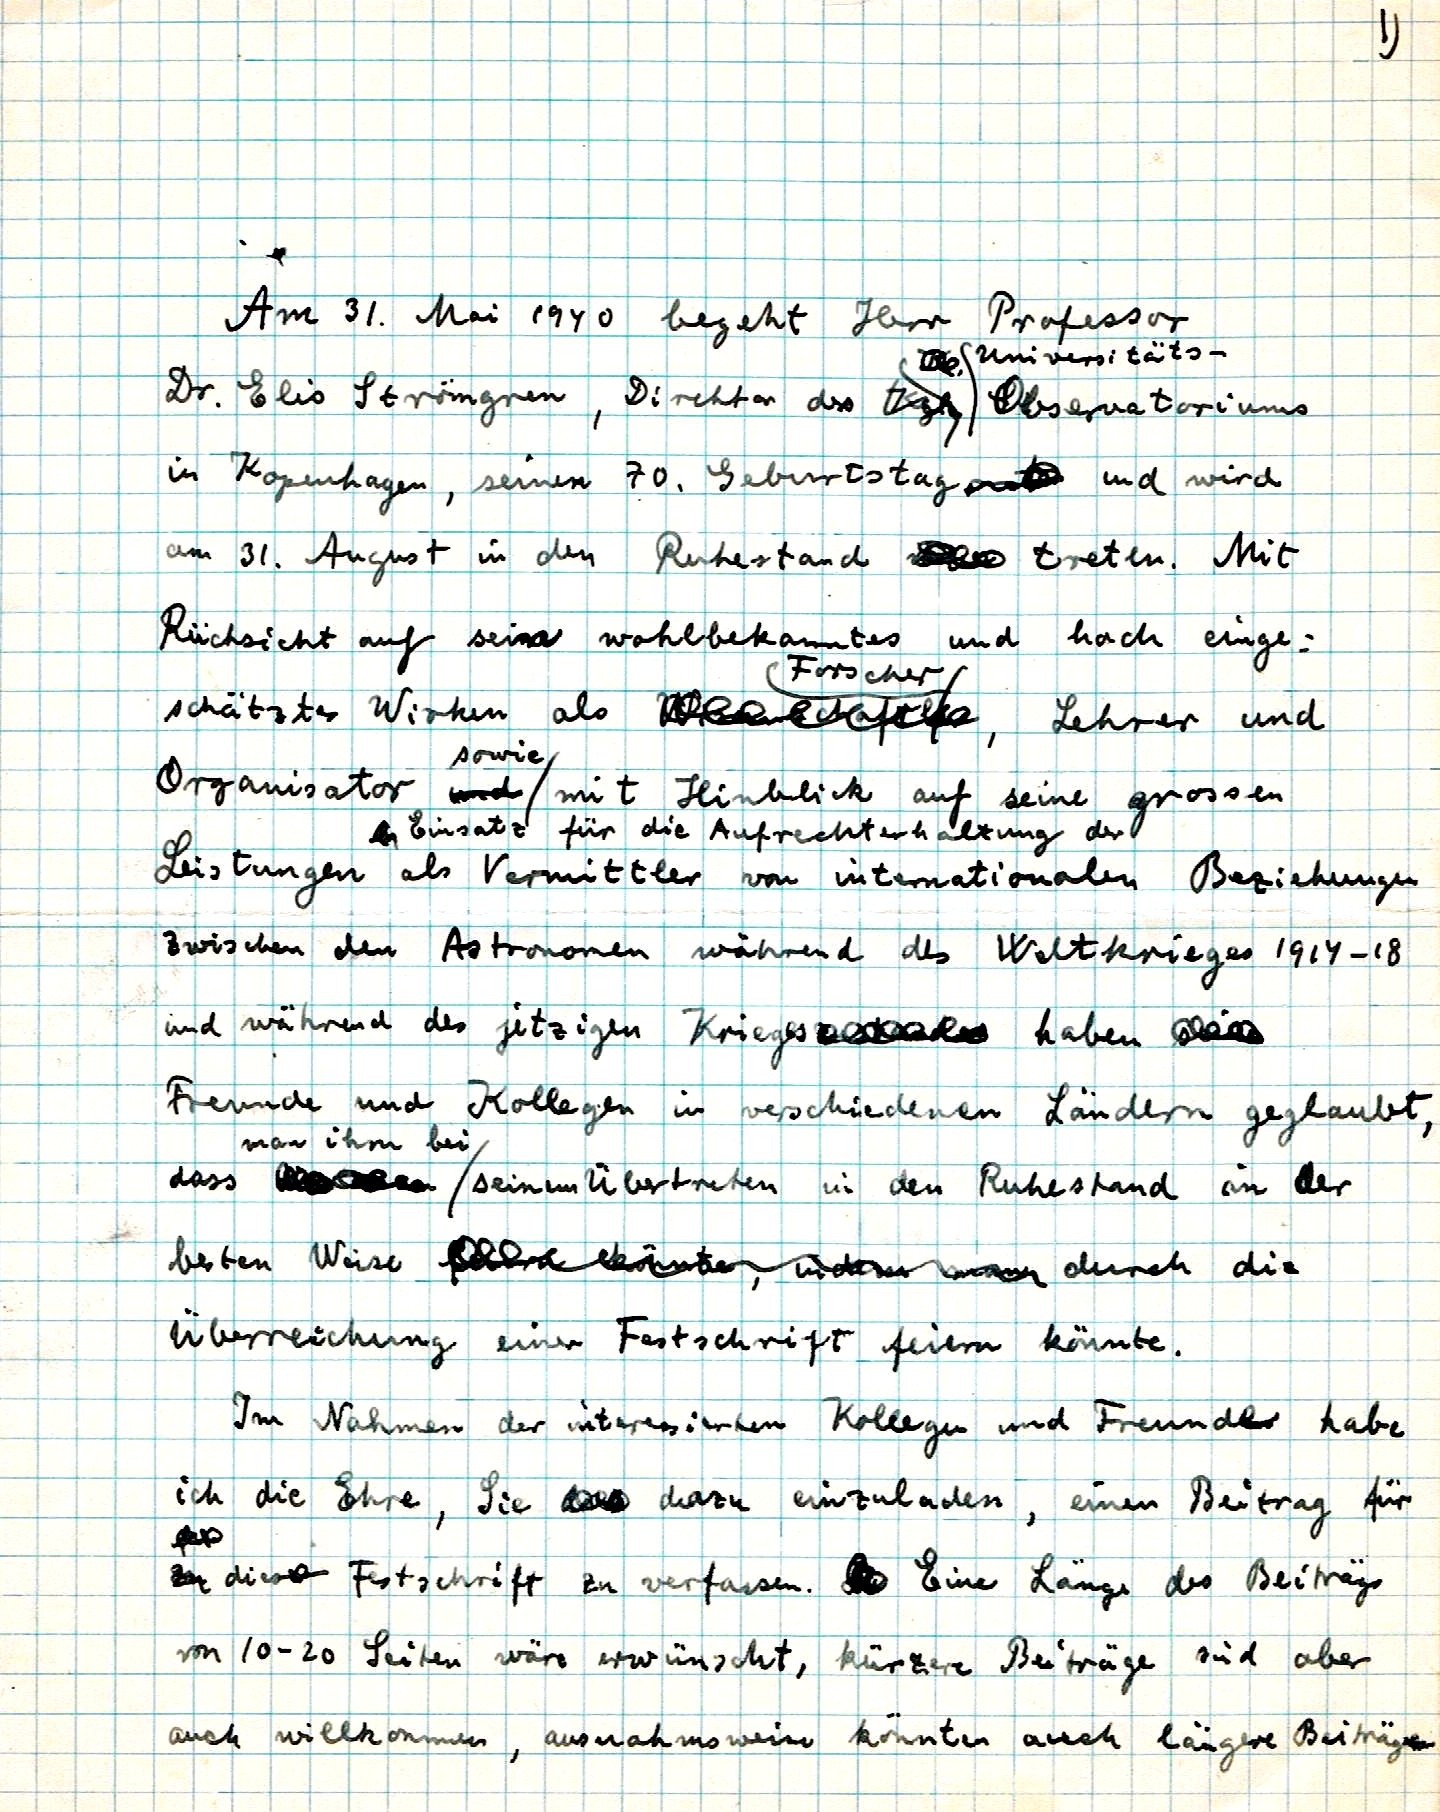 1)
Am 31. Mai 1940 begeht Herr Professor
Universitäts-
Dr. Elis Strömgren, Direktor des Kgl. Observatoriums
in Kopenhagen, seinen 70. Geburtstag und wird
am 31. August in den Ruhestand treten. Mit
Rücksicht auf sein wohlbekanntes und hoch einge-
Forscher
schätztes Wirken als , Lehrer und
sowie
Organisator und mit Hinblick auf seine grossen
Einsatz für die Aufrechterhaltung der
Leistungen als Vermittler von internationalen Beziehungen
zwischen den Astronomen während des Weltkrieges 1914-18
und während des jetzigen Krieges haben
Freunde und Kollegen in verschiedenen Ländern geglaubt,
man ihm bei
dass seinem Übertreten in den Ruhestand in der
besten Weise könnte, indem man durch die
Überreichung einer Festschrift feiern könnte.
Im Nahmen der interessierten Kollegen und Freunde habe
ich die Ehre, Sie dazu einzuladen, einen Beitrag für
zu diese Festschrift zu verfassen. Eine Länge des Beiträgs
von 10-20 Seiten wäre erwünscht, kürzere Beiträge sind aber
auch willkommen, ausnahmsweise könnten auch längere Beiträge